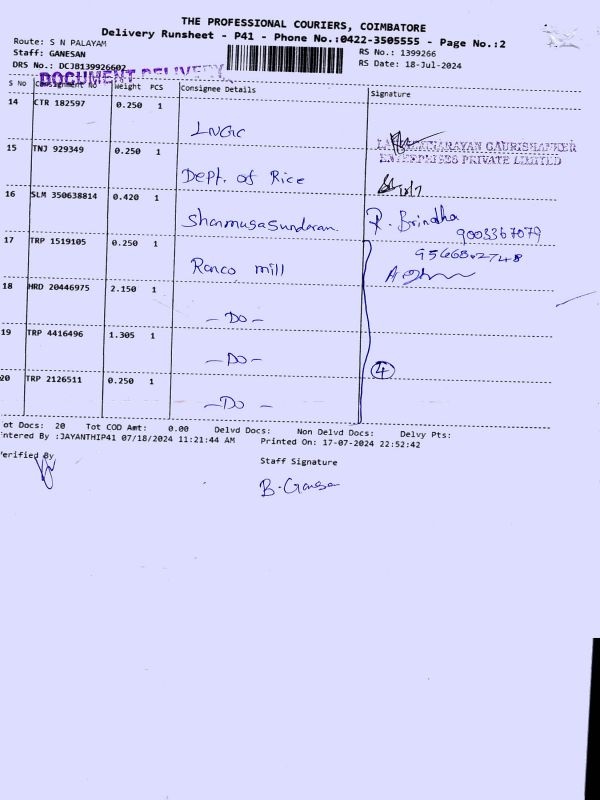 THE PROFESSIONAL COURIERS, COIMBATORE
Delivery Runsheet - P41 - Phone No.:0422-3505555 - Page No.:2
Route: S N PALAYAM
RS No.: 1399266
Staff: GANESAN
RS Date: 18-Jul-2024
DRS No.: DCJB139926602
DOCUMENT DELIVERY
S No Consignment No Weight PCS Consignee Details Signature
14 CTR 182597 0.250 1
LNGC
GAURISHANKER
ENTERPRISES PRIVATE LIMITED
15 TNJ 929349 0.250 1
Dept. of Rice
16 SLM 350638814 0.420 1
Shanmugasundaran. R. Brindha
9003367079
17 TRP 1519105 0.250 1
Ranco mill
18 HRD 20446975 2.150 1
- Do -
19 TRP 4416496 1.305 1
- Do - 4
20 TRP 2126511 0.250 1
- Do -
ot Docs: 20 Tot COD Amt: 0.00 Delvd Docs: Non Delvd Docs: Delvy Pts:
ntered By :JAYANTHIP41 07/18/2024 11:21:44 AM Printed On: 17-07-2024 22:52:42
erified By
Staff Signature
B. Ganesan